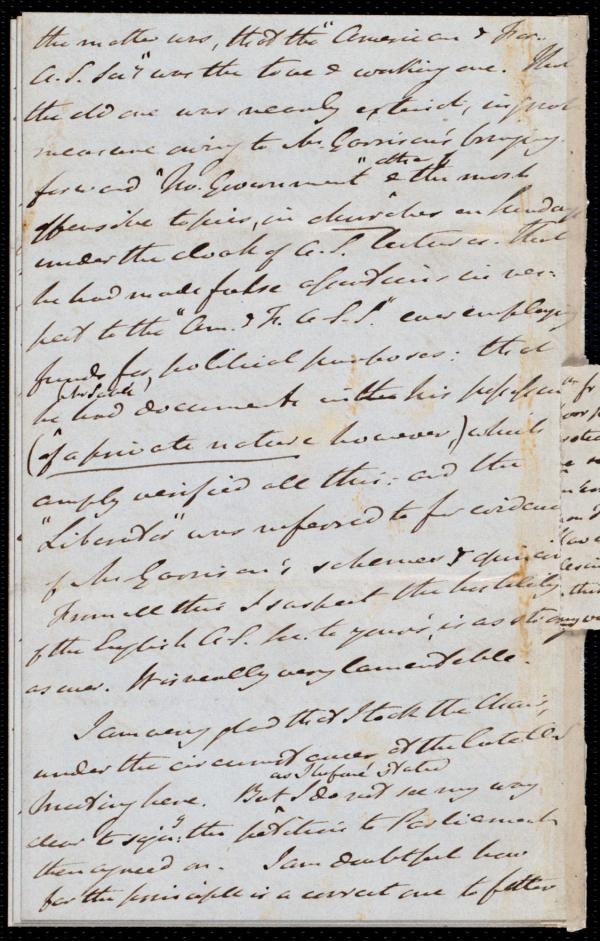 the matter was, that the "American & For.
A.S. Socy" was the true & working one. That
the old one was nearly extinct, in great
measure owing to Mr Garrison's bringing
forward "No. Government" & other the most
offensive topics, in churches on Sundays
under the cloak of A.S. lectures. That
he had made false assertions in res-
pect to the "Am. & F. A.S.S." ever employing
funds for political purposes: that
he had documents within his possession
(of a private nature however,) which
amply verified all this: and the
"Liberator" was referred to for evidence
of Mr Garrison's schemes & opinions
From all this I suspect the hostility
of the English A.S. Soc. to yours, is as strong
as ever. It is really very lamentable.
I am very glad that I took the Chair,
under the circumstances at the
meeting here. But as I before stated I do not see my way
clear to sign the petition to Parliament
then agreed on. I am doubtful how
far the principle is a correct one to